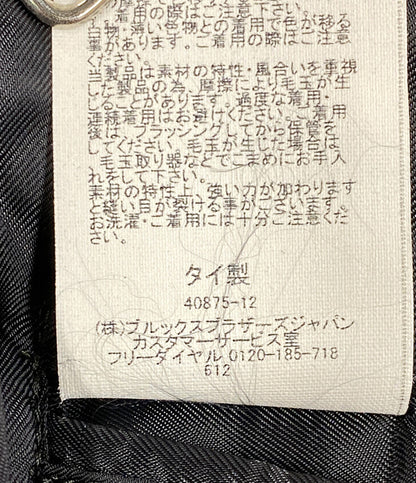 着用の際はご着用で色が移る
白物・薄い色物との着用はご注意
事があります。ご着用の際はご注意
ください。
当製品は素材の特性・風合いを重視
した製品の為、摩擦により毛玉が生
じることがあります。過度な着用、
連続着用はお避けください。ご着用
後は、ブラッシングしてから保管を
してください。毛玉が生じた場合は
、毛玉取り器などでこまめにお手入
れをして下さい。
素材の特性上、強い力が加わります
と縫い目が裂ける事がございます。
お洗濯・ご着用には十分ご注意くだ
さい。
タイ製
40875-12
(株)ブルックスブラザーズジャパン
カスタマーサービス室
フリーダイヤル 0120-185-718
612